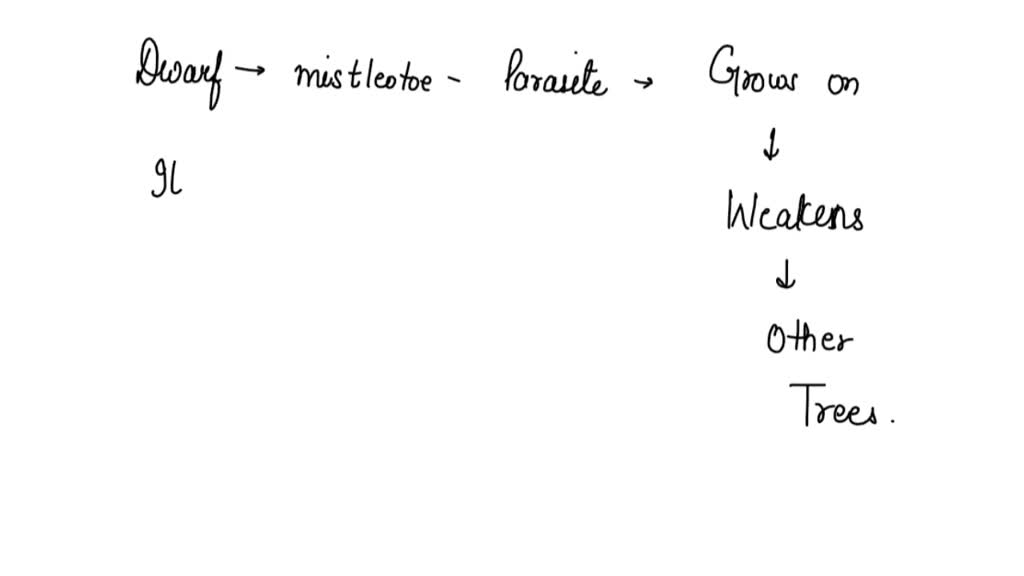 Dwarf → mistletoe - Parasite → Grows on
↓
It
Weakens
↓
Other
Trees.